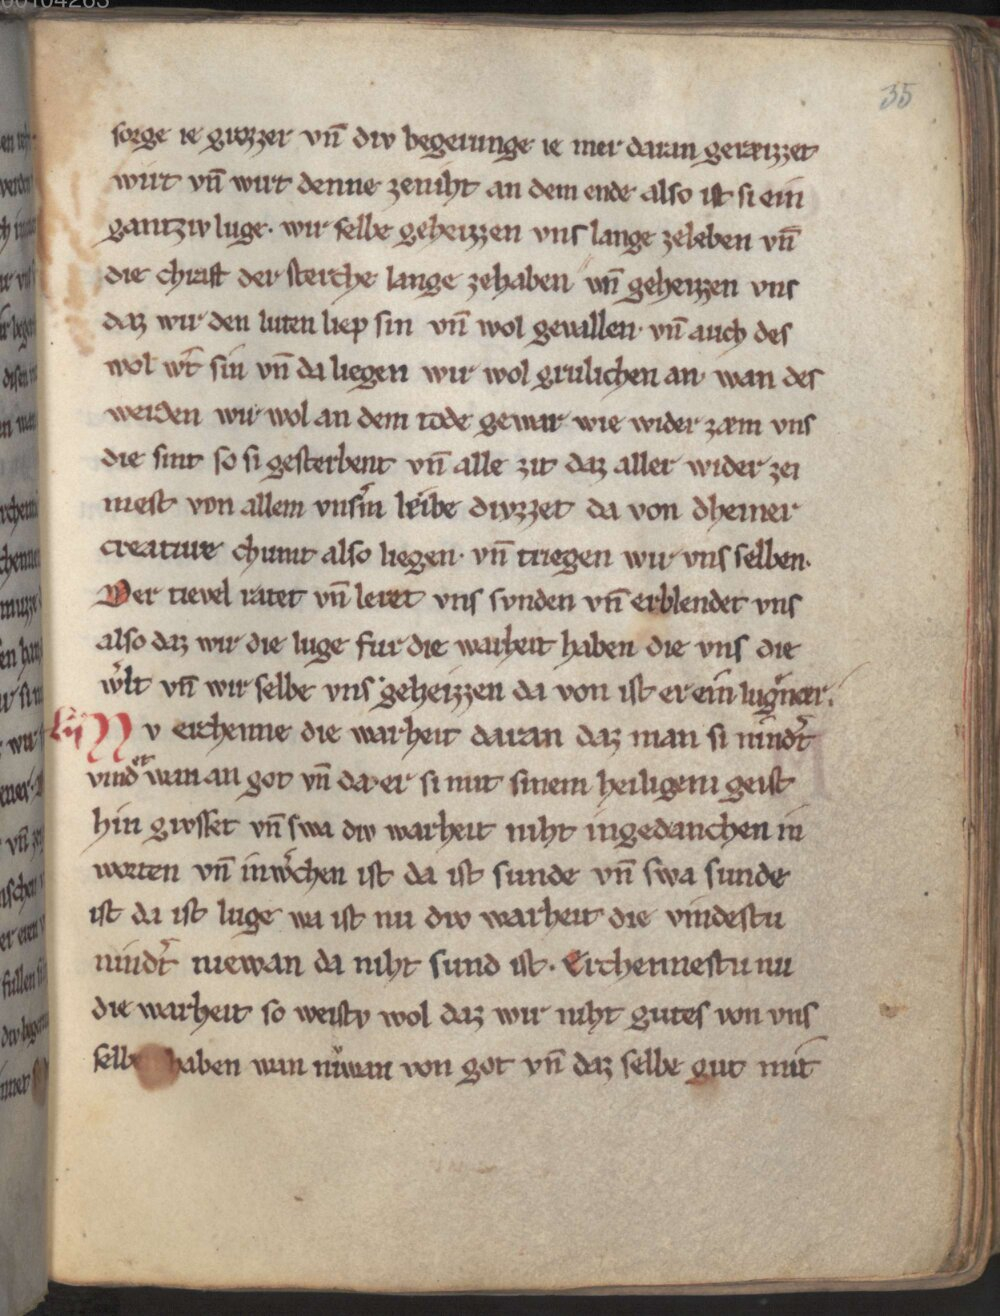 35
sorge ie grozzer vn̄ div begerunge ie mer daran geraizzet
wirt vn̄ wirt denne zeniht an dem ende also ist si ein
gantziv luge. wir selbe geheizzen vns lange zeleben vn̄
die chraft der sterche lange zehaben vn̄ geheizzen vns
daz wir den luten liep sin vn̄ wol gevallen. vn̄ auch des
wol w̄t sin vn̄ da liegen wir wol grulichen an. wan des
werden wir wol an dem tode gewar wie wider zæm vns
die sint so si gesterbent vn̄ alle zit daz aller wider zei
mest von allem vnsm̄ leibe divzzet da von dheiner
creature chumt also liegen. vn̄ triegen wir vns selben.
Der tievel ratet vn̄ leret vns svnden vn̄ erblendet vns
also daz wir die luge fur die warheit haben die vns die
w̓lt vn̄ wir selbe vns geheizzen da von ist er ein lugnær.
Nv erchenne die warheit daran daz man si nindt̓
vindet wan an got vn̄ da er si mit sinem heiligem geist
hin givsset vn̄ swa div warheit niht ingedanchen in
worten vn̄ inw̓chen ist da ist sunde vn̄ swa sunde
ist da ist luge wa ist nu div warheit die vindestu
nindt̓ niewan da niht sund ist. Erchennestu nu
die warheit so weistv wol daz wir niht gutes von vns
selbe haben wan niwan von got vn̄ daz selbe gut mit